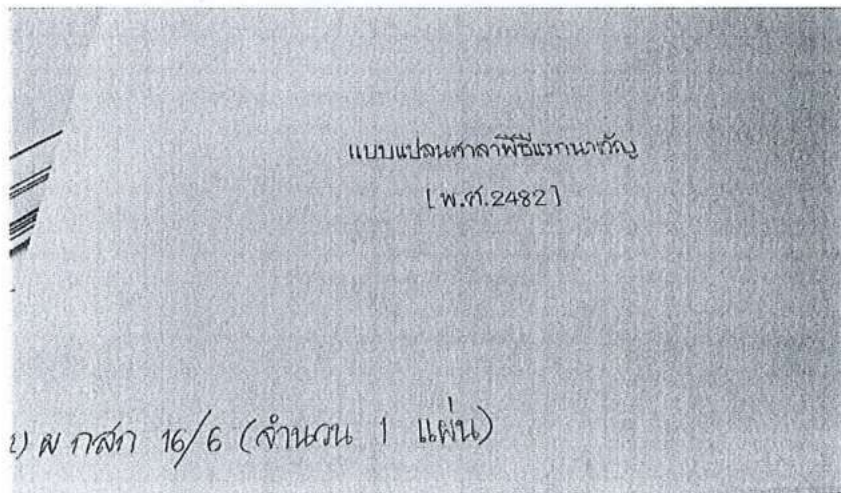 แบบแปลนศาลาพิธีแรกนาขวัญ
[พ.ศ.2482]
ผ กสก 16/6 (จำนวน 1 แผ่น)